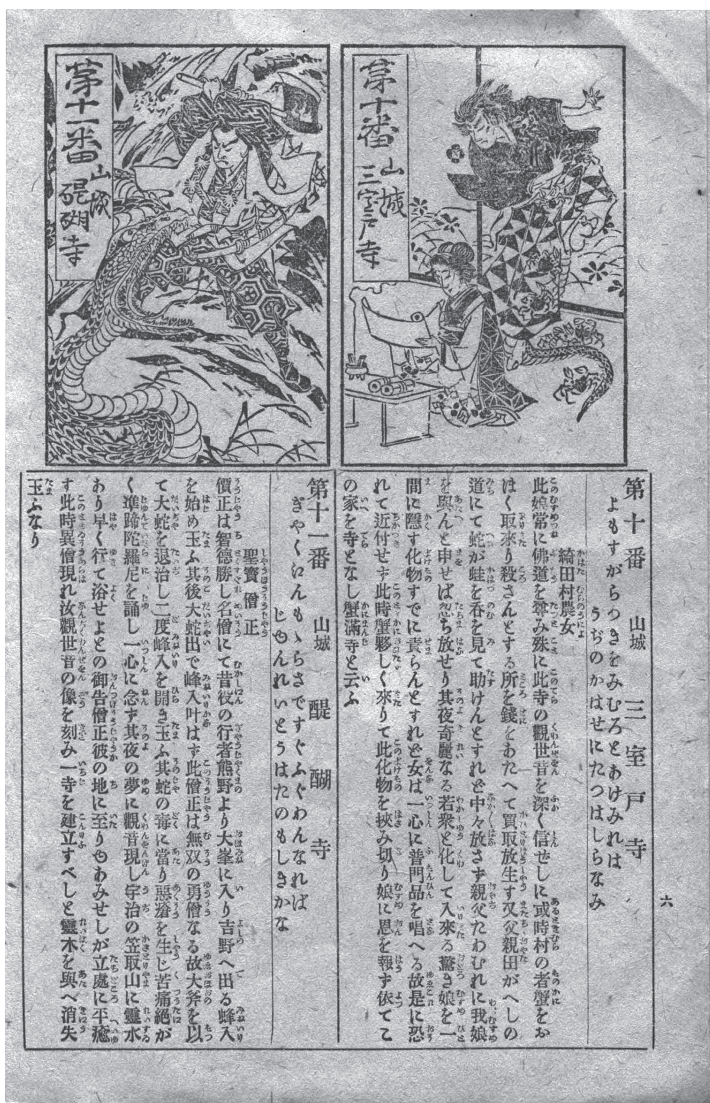 第十番
山城
三室戸寺
第十一番
山城
醍醐寺
六
第十番 山城 三室戸寺
よもすがらつきをみむろとあけみれば
うぢのかはせにたつはしらなみ
綺田村農女
此娘常に佛道を尊み殊に此寺の觀世音を深く信せしに或時村の者蟹をお
ほく取來り殺さんとする所を錢をあたへて買取放生す又父親田がへしの
道にて蛇が蛙を呑を見て助けんとすれど中々放さず親父たわむれに我娘
を與んと申せば忽ち放せり其夜奇麗なる若衆と化して入來る驚き娘を一
間に隱す化物すでに責らんとすれど女は一心に普門品を唱へる故是に恐
れて近付せず此時蟹夥しく來りて此化物を挾み切り娘に恩を報ず依てこ
の家を寺となし蟹滿寺と云ふ
第十一番 山城 醍醐寺
ぎやくゑんももらさですくふぐわんなれば
じゆんれいとうはたのもしきかな
聖寳僧正
僧正は智德勝し名僧にて昔役の行者熊野より大峯に入り吉野へ出る峰入
を始め玉ふ其後大蛇出で峰入叶はず此僧正は無双の勇僧なる故大斧を以
て大蛇を退治し二度峰入を開き玉ふ其蛇の毒に當り惡瘡を生じ苦痛絶が
く準蹄陀羅尼を誦し一心に念ず其夜の夢に觀音現し宇治の笠取山に靈水
あり早く行て浴せよとの御告僧正彼の地に至りゆあみせしが立處に平癒
す此時異僧現れ汝觀世音の像を刻み一寺を建立すべしと靈木を與へ消失
玉ふなり